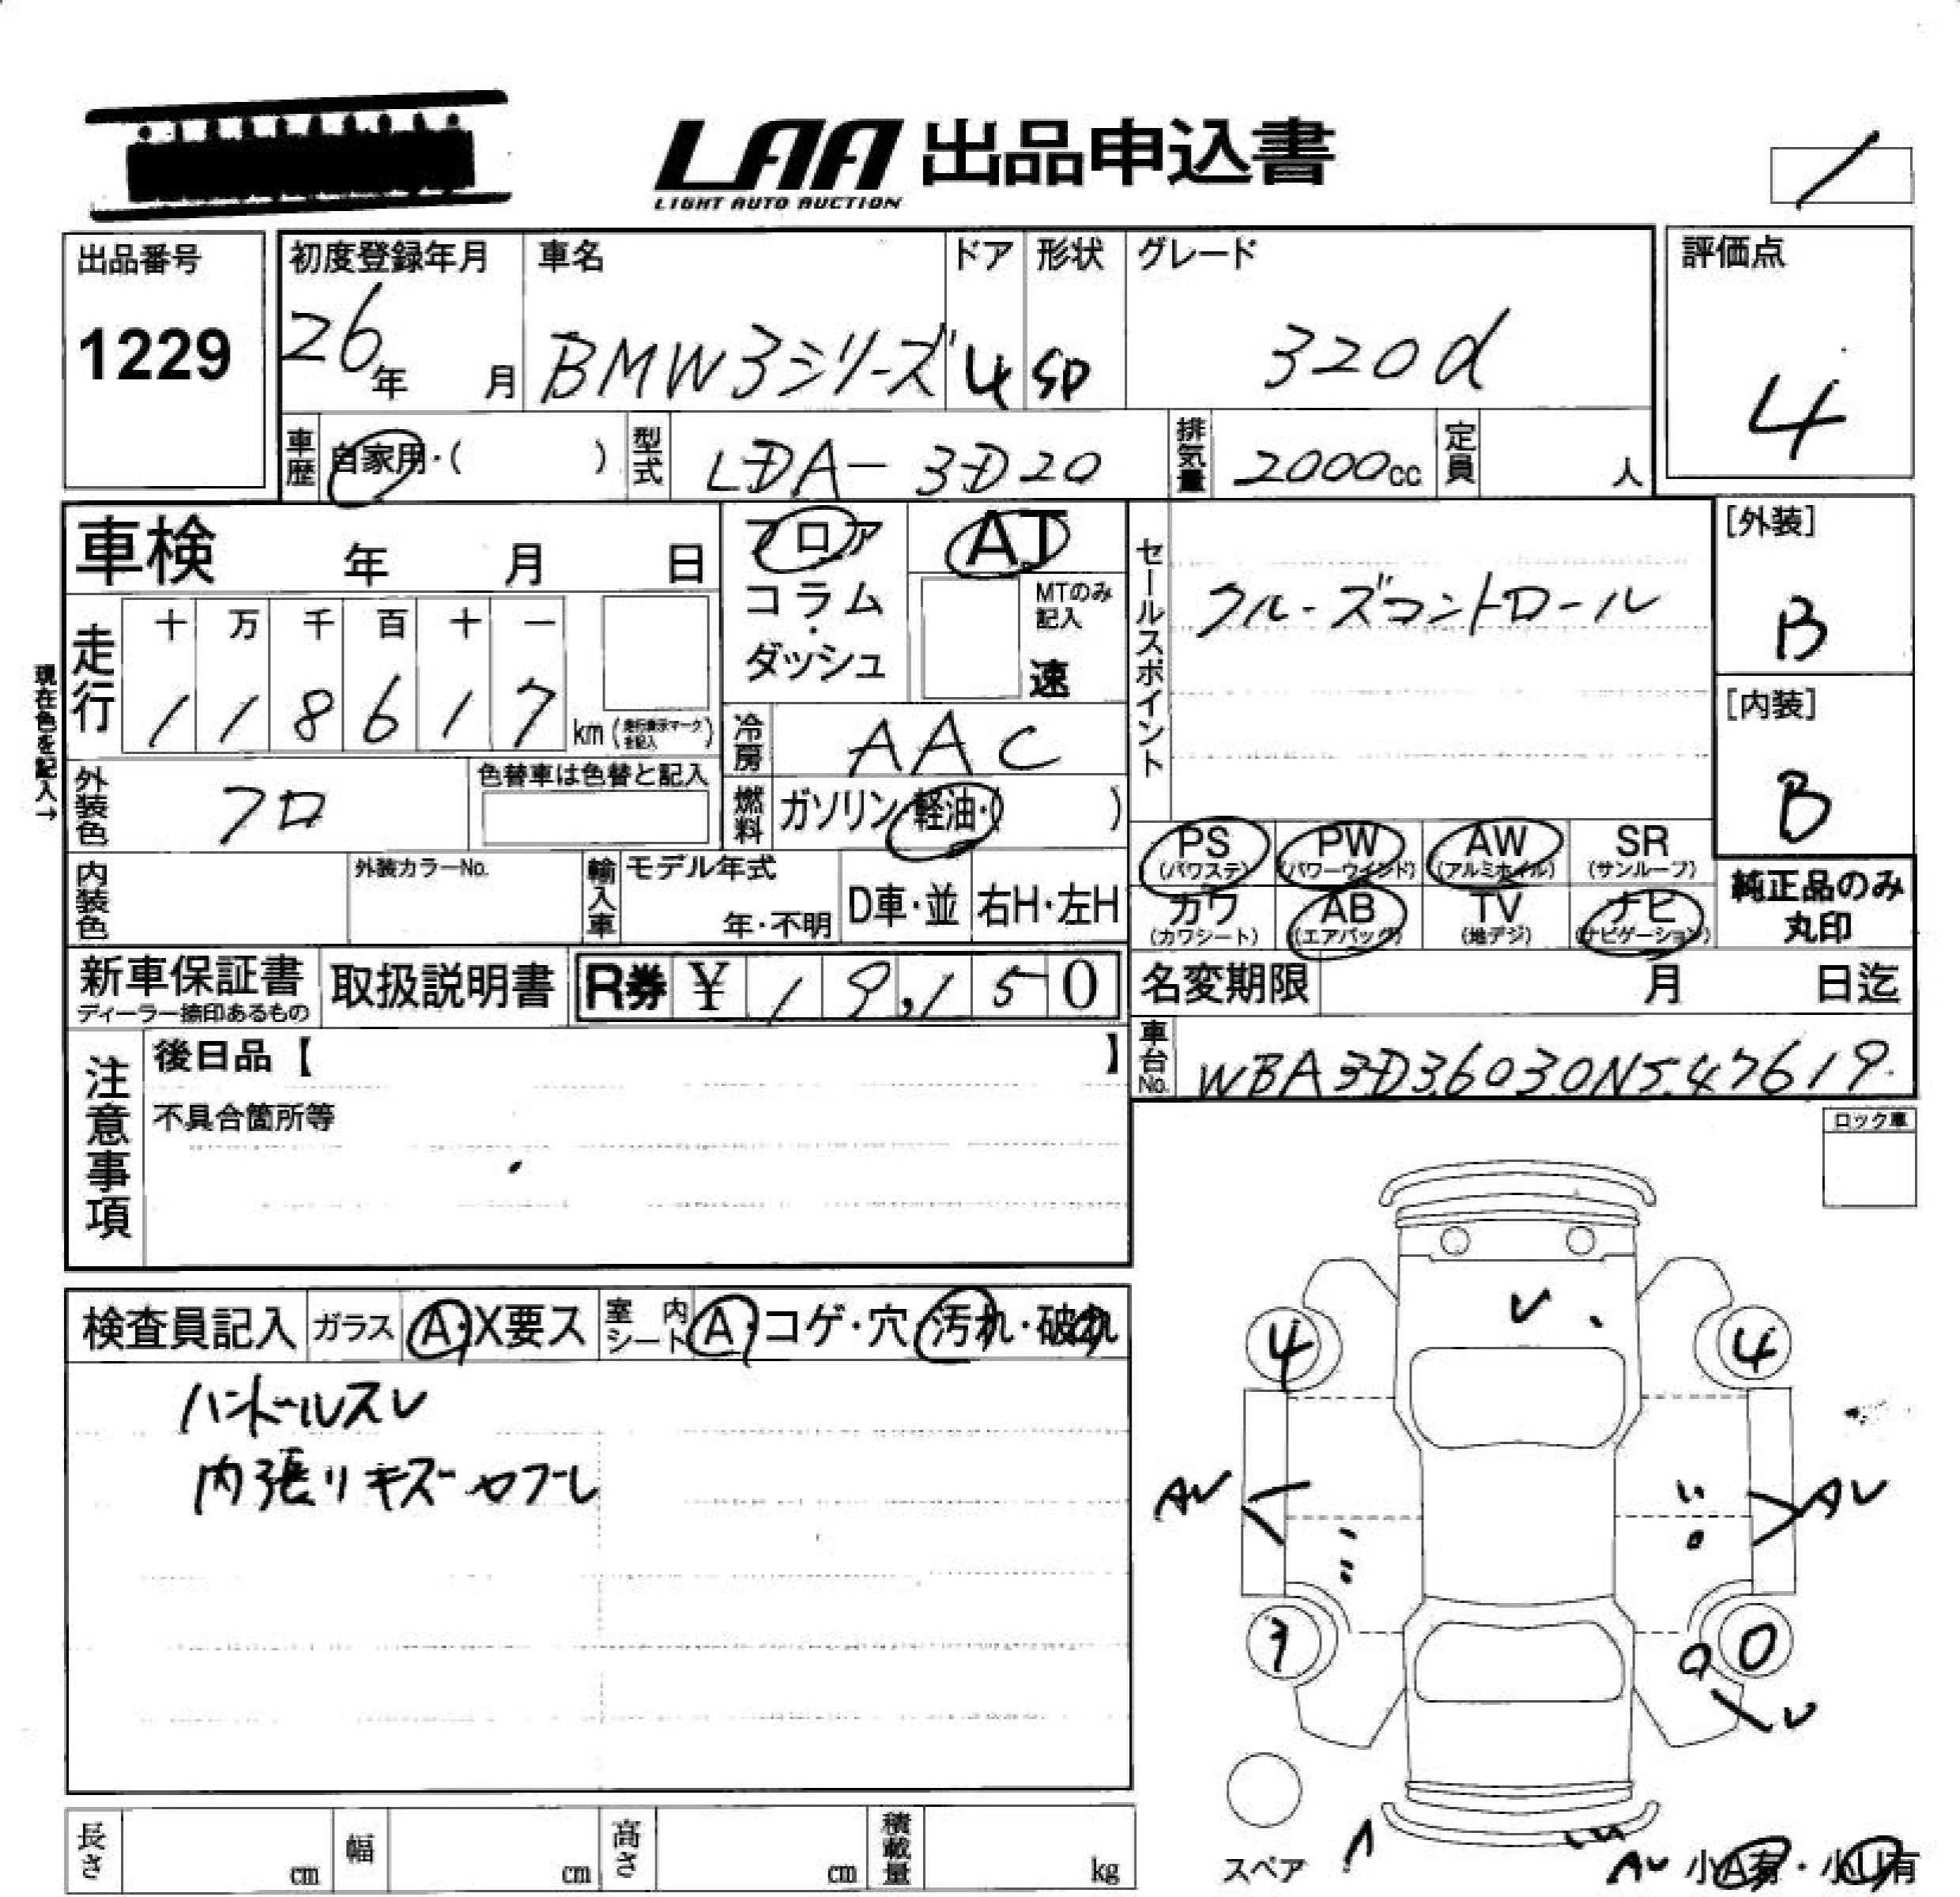 LAA 出品申込書
LIGHT AUTO AUCTION
出品番号
1229
初度登録年月
26年 月
車名
BMW3シリーズ
ドア
4
形状
SD
グレード
320d
評価点
4
車歴 自家用・( )
型式 LDA-3D20
排気量 2000cc
定員 人
車検 年 月 日
フロア
コラム
・
ダッシュ
AT
MTのみ
記入
速
セールスポイント
クルーズコントロール
[外装]
B
[内装]
B
現在色を記入→
走行
十 万 千 百 十 一
1 1 8 6 1 7
km (走行表示マークを記入)
冷房 AAC
外装色 クロ
色替車は色替と記入
燃料 ガソリン・軽油・( )
PS (パワステ)
PW (パワーウインド)
AW (アルミホイル)
SR (サンルーフ)
カワ (カワシート)
AB (エアバッグ)
TV (地デジ)
ナビ (ナビゲーション)
純正品のみ
丸印
内装色
外装カラーNo.
輸入車
モデル年式
年・不明
D車・並
右H・左H
新車保証書
ディーラー捺印あるもの
取扱説明書
R券 ¥ 19,150
名変期限 月 日迄
車台No. WBA3D36030N547619
注意事項
後日品【 】
不具合箇所等
ロック車
検査員記入
ガラス A・X要ス
室内シート A・コゲ・穴・汚れ・破れ
ハンドルスレ
内張リキズ ヤブレ
4
4
AU
AU
3
0
U
スペア
AU 小A有・小U有
長さ cm
幅 cm
高さ cm
積載量 kg